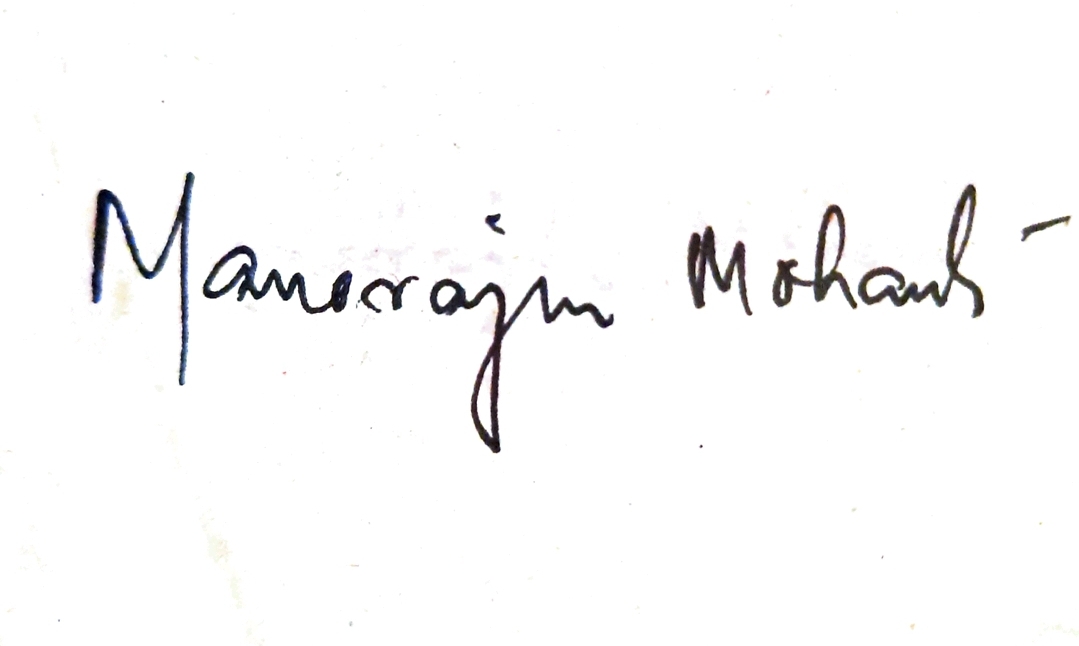 Manoranjan Mohanty